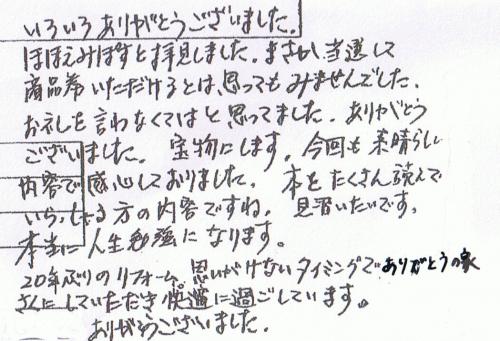 いろいろありがとうございました。
ほほえみぽすと拝見しました。まさか、当選して
商品券いただけるとは、思ってもみませんでした。
お礼しを言わなくてはと思ってました。ありがとう
ございました。宝物にします。今回も素晴らしい
内容で感心しておりました。本をたくさん読んで
いらっしゃる方の内容ですね。見習いたいです。
本当に人生勉強になります。
20年ぶりのリフォーム。思いがけないタイミングでありがとうの家
さんにしていただき快適に過ごしています。
ありがとうございました。